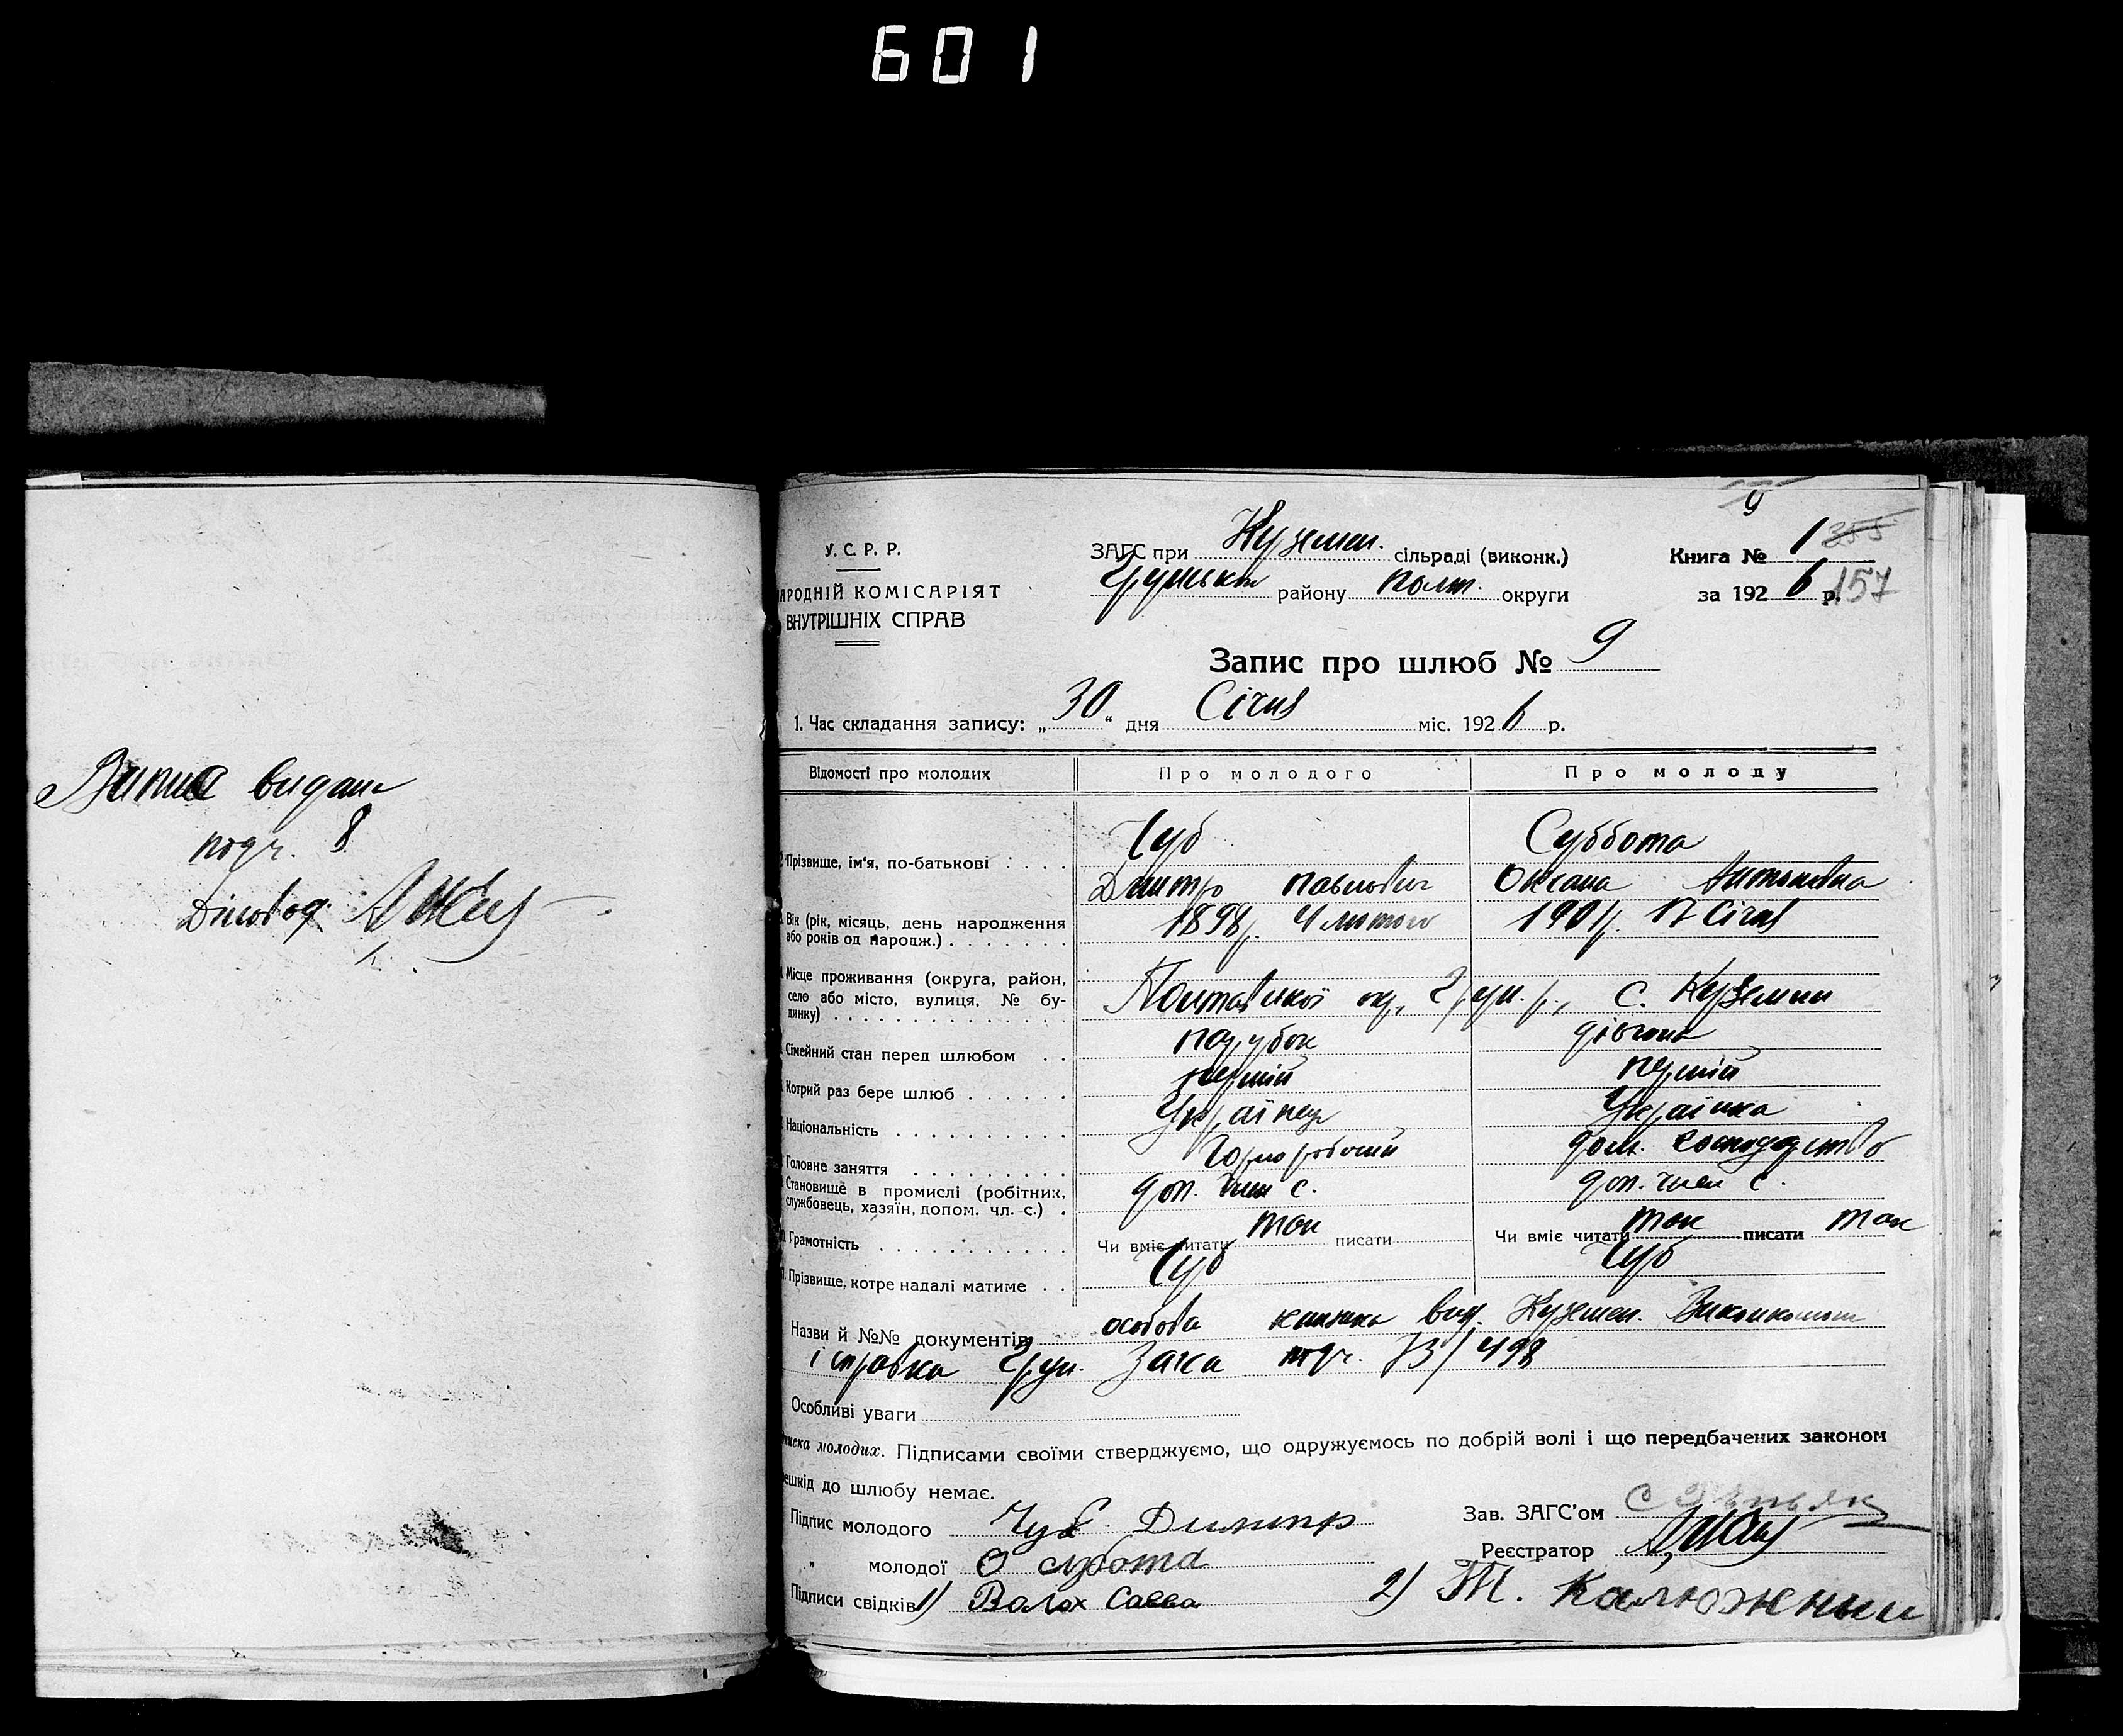 601
Випис видано
підч. 8
Діловод
У. С. Р. Р.
АРОДНІЙ КОМІСАРІЯТ
ВНУТРІШНІХ СПРАВ
ЗАГС при Куземен. сільраді (виконк.)
Грунськ району Полт. округи
9
Книга № 1 355
за 1926 р. 157
Запис про шлюб № 9
1. Час складання запису: „30“ дня Січня міс. 1926 р.
Відомості про молодих Про молодого Про молоду
Прізвище, ім'я, по-батькові . . . . Чуб Суббота
Дмитро Павлович Оксана Антоновна
Вік (рік, місяць, день народження або років од народж.) . . . . . . . 1898р. 4 лютого 1901р. 17 Січня
Місце проживання (округа, район, село або місто, вулиця, № будинку) . . . . . . . . . . . . . . Полтавської окр, Грун. р., с. Куземин
Сімейний стан перед шлюбом . . парубок дівчина
Котрий раз бере шлюб . . . . . . перший перший
Національність . . . . . . . . . . Українец Українка
Головне заняття . . . . . . . . . Чорноробочий дом. господарство
Становище в промислі (робітник, службовець, хазяїн, допом. чл. с.) . доп. член с. доп. член с.
Грамотність . . . . . . . . . . . Чи вміє читати так писати Чи вміє читати так писати так
Прізвище, котре надалі матиме . . Чуб Чуб
Назви й №№ документів особова книжка вид. Куземен. Виконкомом
і справка Грун. Загса 73/498
Особливі уваги
иска молодих. Підписами своїми стверджуємо, що одружуємось по добрій волі і що передбачених законом
ешкід до шлюбу немає.
Підпис молодого Чуб Димитр
Зав. ЗАГС'ом
„ молодої О субота
Реєстратор
Підписи свідків 1) Волох Савва 2) Т. Калюжный